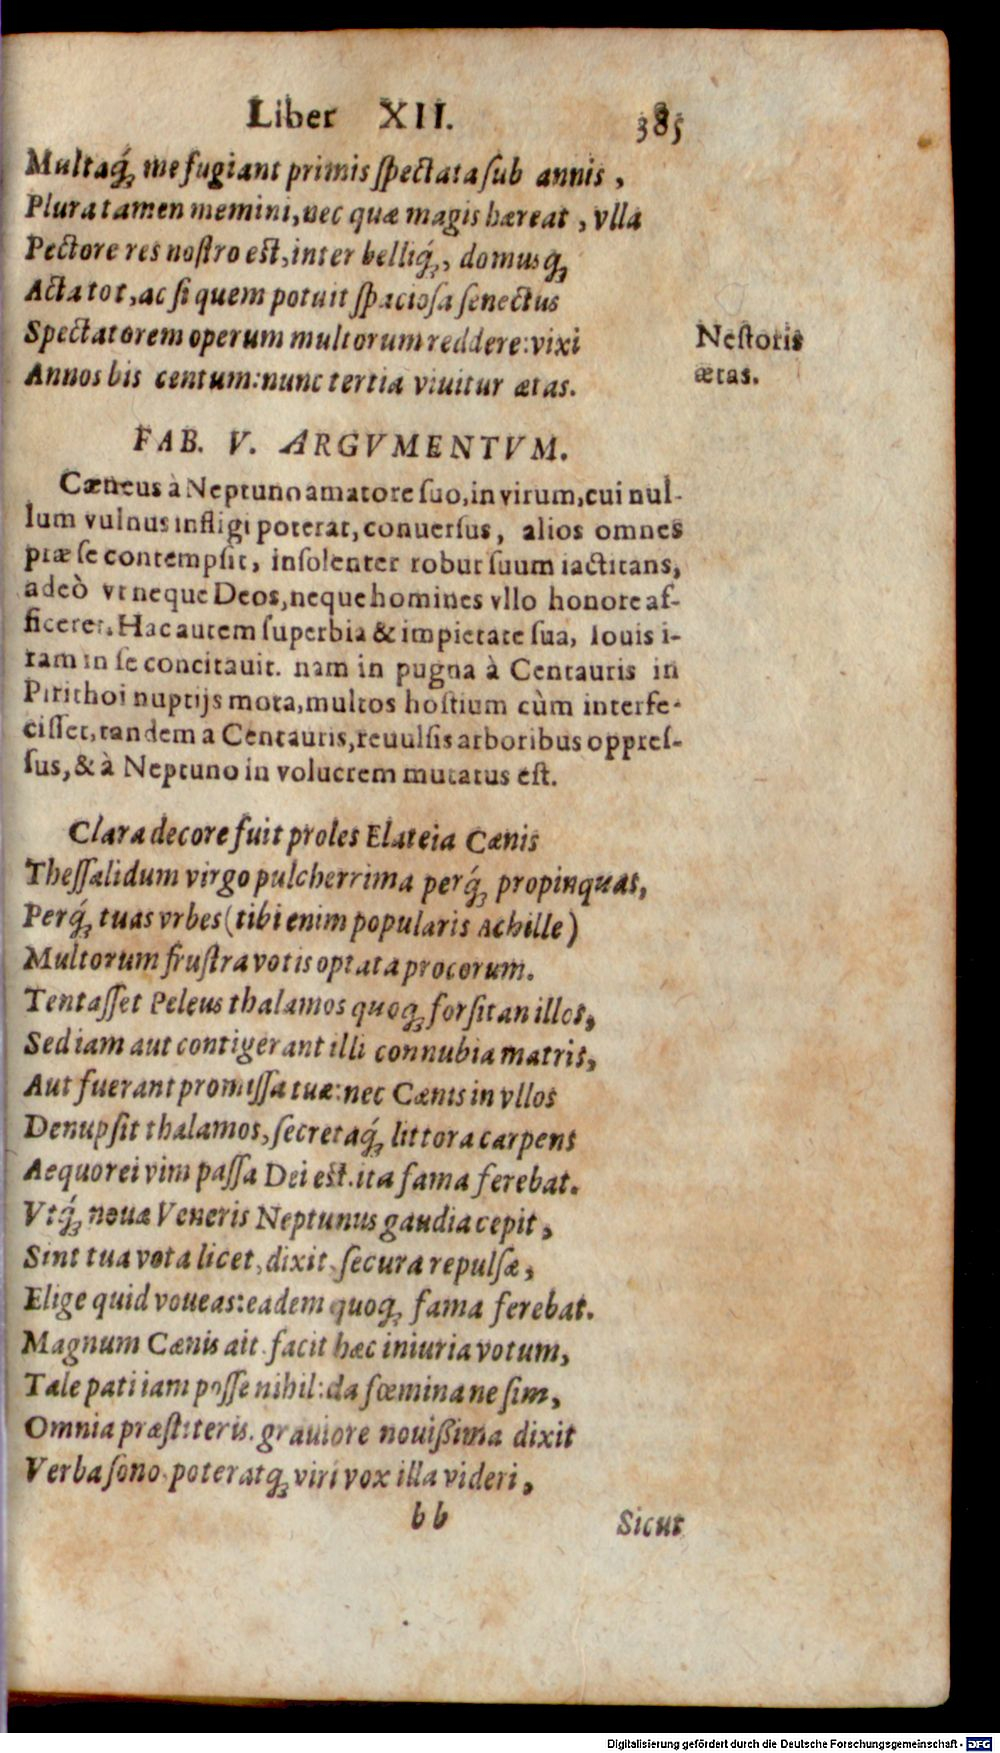 Liber XII. 385
Multaq́; me fugiant primis ſpectata ſub annis,
Plura tamen memini, nec quæ magis hæreat, vlla
Pectore res noſtro eſt, inter belliq́;, domusq;
Acta tot, ac ſi quem potuit ſpacioſa ſenectus
Spectatorem operum multorum reddere: vixi
Annos bis centum: nunc tertia viuitur ætas.
Neſtoris
ætas.
FAB. V. ARGVMENTVM.
Cæneus à Neptuno amatore ſuo, in virum, cui nul-
lum vulnus infligi poterat, conuerſus, alios omnes
præ ſe contempſit, inſolenter robur ſuum iactitans,
adeò vt neque Deos, neque homines vllo honore af-
ficeret. Hac autem ſuperbia & impietate ſua, Iouis i-
ram in ſe concitauit. nam in pugna à Centauris in
Pirithoi nuptijs mota, multos hoſtium cùm interfe-
ciſſet, tandem a Centauris, reuulſis arboribus oppreſ-
ſus, & à Neptuno in volucrem mutatus eſt.
Clara decore fuit proles Elateia Cænis
Theſſalidum virgo pulcherrima perq́; propinquas,
Perq́; tuas vrbes (tibi enim popularis Achille)
Multorum fruſtra votis optata procorum.
Tentaſſet Peleus thalamos quoq; forſitan illos,
Sed iam aut contigerant illi connubia matris,
Aut fuerant promiſſa tuæ: nec Cænis in vllos
Denupſit thalamos, ſecretaq́; littora carpens
Aequorei vim paſſa Dei eſt. ita fama ferebat.
Vtq́; nouæ Veneris Neptunus gaudia cepit,
Sint tua vota licet, dixit, ſecura repulſæ,
Elige quid voueas: eadem quoq; fama ferebat.
Magnum Cænis ait. facit hæc iniuria votum,
Tale pati iam poſſe nihil: da fœmina ne ſim,
Omnia præſtiteris. grauiore nouißima dixit
Verba ſono. poteratq; viri vox illa videri,
bb Sicut
Digitalisierung gefördert durch die Deutsche Forschungsgemeinschaft - DFG